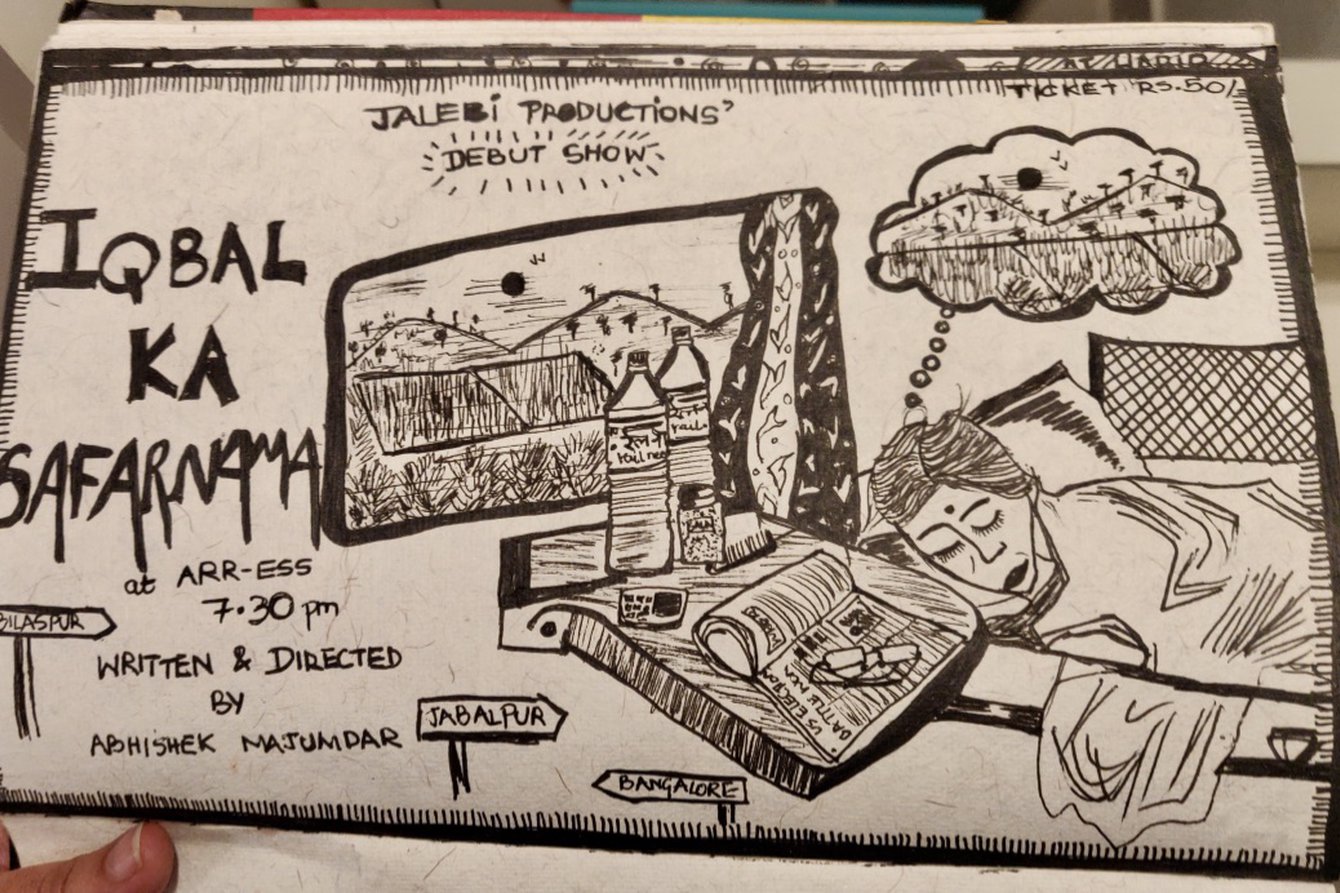 TICKET RS.50/-
JALEBI PRODUCTIONS'
DEBUT SHOW
IQBAL
KA
SAFARNAMA
at ARR-ESS
7.30 pm
WRITTEN & DIRECTED
BY
ABHISHEK MAJUMDAR
BILASPUR
JABALPUR
BANGALORE
रेल नी
rail nee
rail
US ELECTION
BATTLE